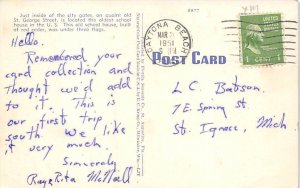 Just inside of the city gates, on quaint old
St. George Street, is located the oldest school
house in the U. S. This old school house, built
of red cedar, was under three flags.
8877
Hello.
Remembered your
card collection and
thought we'd add
to it. This is
our first trip
south. We like
it very much.
Sincerely
Ray & Rita McNeill
DAYTONA BEACH
MAR
1951
FLA
POST CARD
1 CENT 1
L. C. Batson.
7 E. Spring St
St. Ignace, Mich.